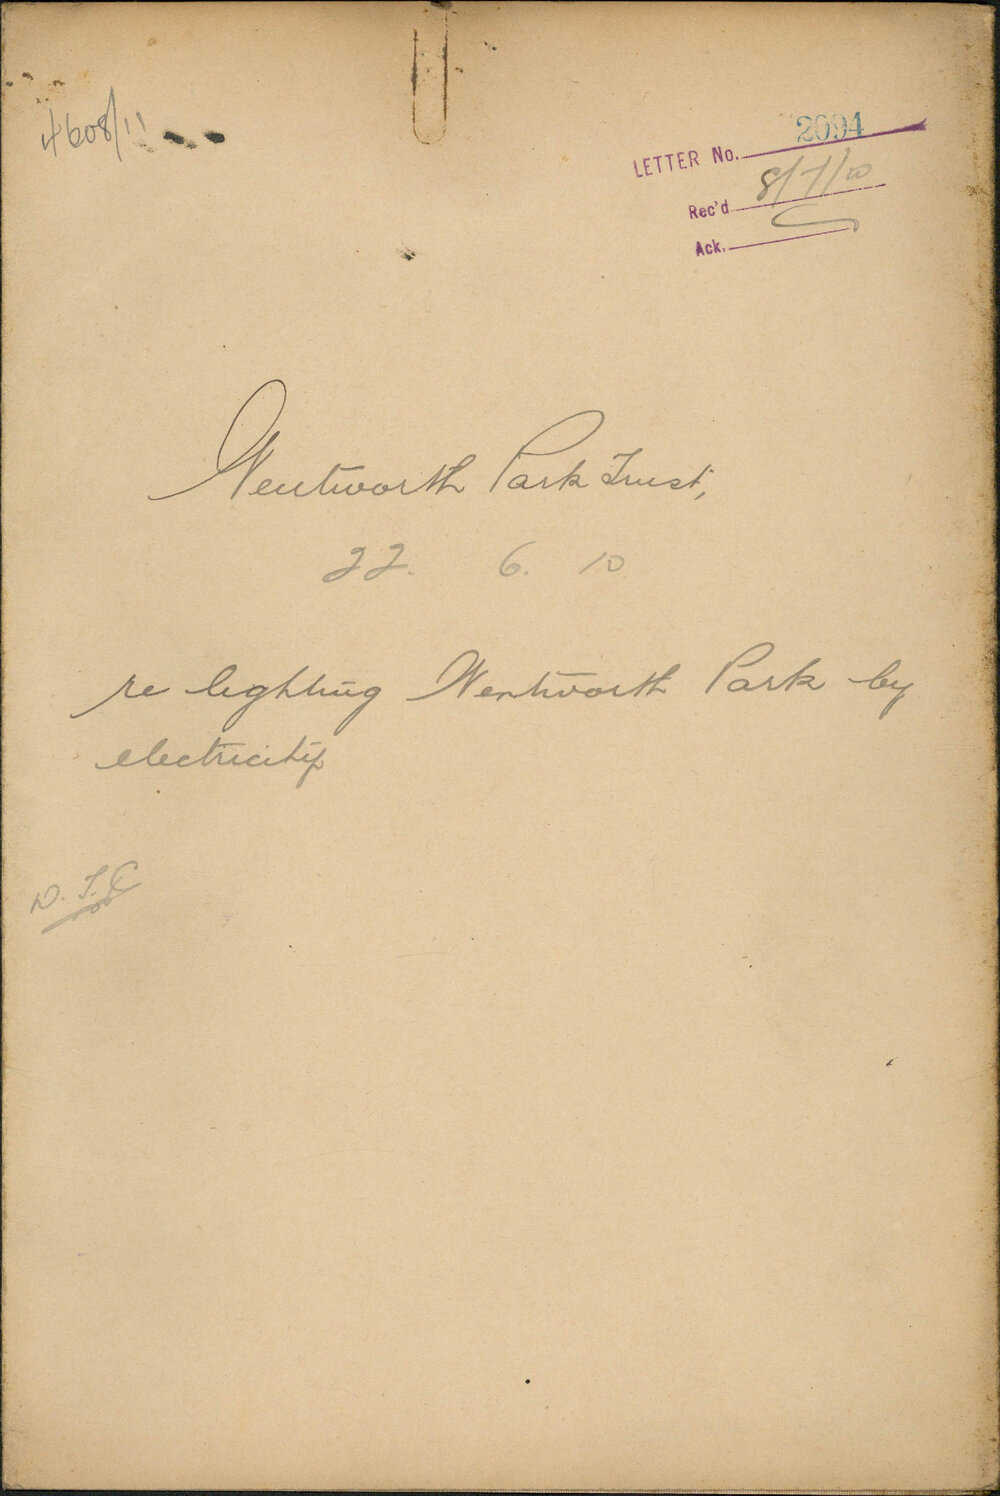 4608/11
LETTER No. 2094
Rec'd 8/7/10
Ack.
Wentworth Park Trust,
22. 6. 10
re lighting Wentworth Park by
electricity